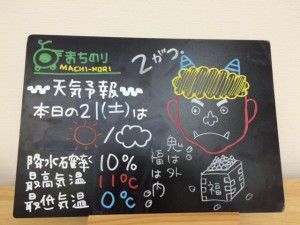 まちのり
MACHI-NORI
2がつ。
天気予報
本日の21(土)は
/
降水確率 10%
最高気温 11℃
最低気温 0℃
鬼は外
福は内
福